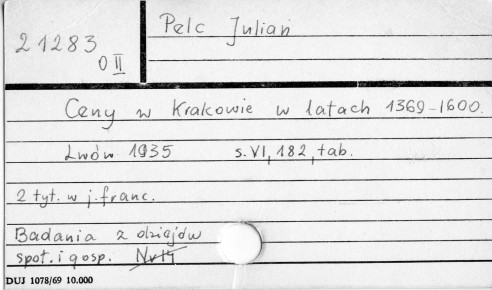 21283
O II
Pelc Julian
Ceny w Krakowie w latach 1369-1600.
Lwów 1935 s. VI, 182, tab.
2 tyt. w j. franc.
Badania z dziejów
społ. i gosp. Nr 14
DUJ 1078/69 10.000